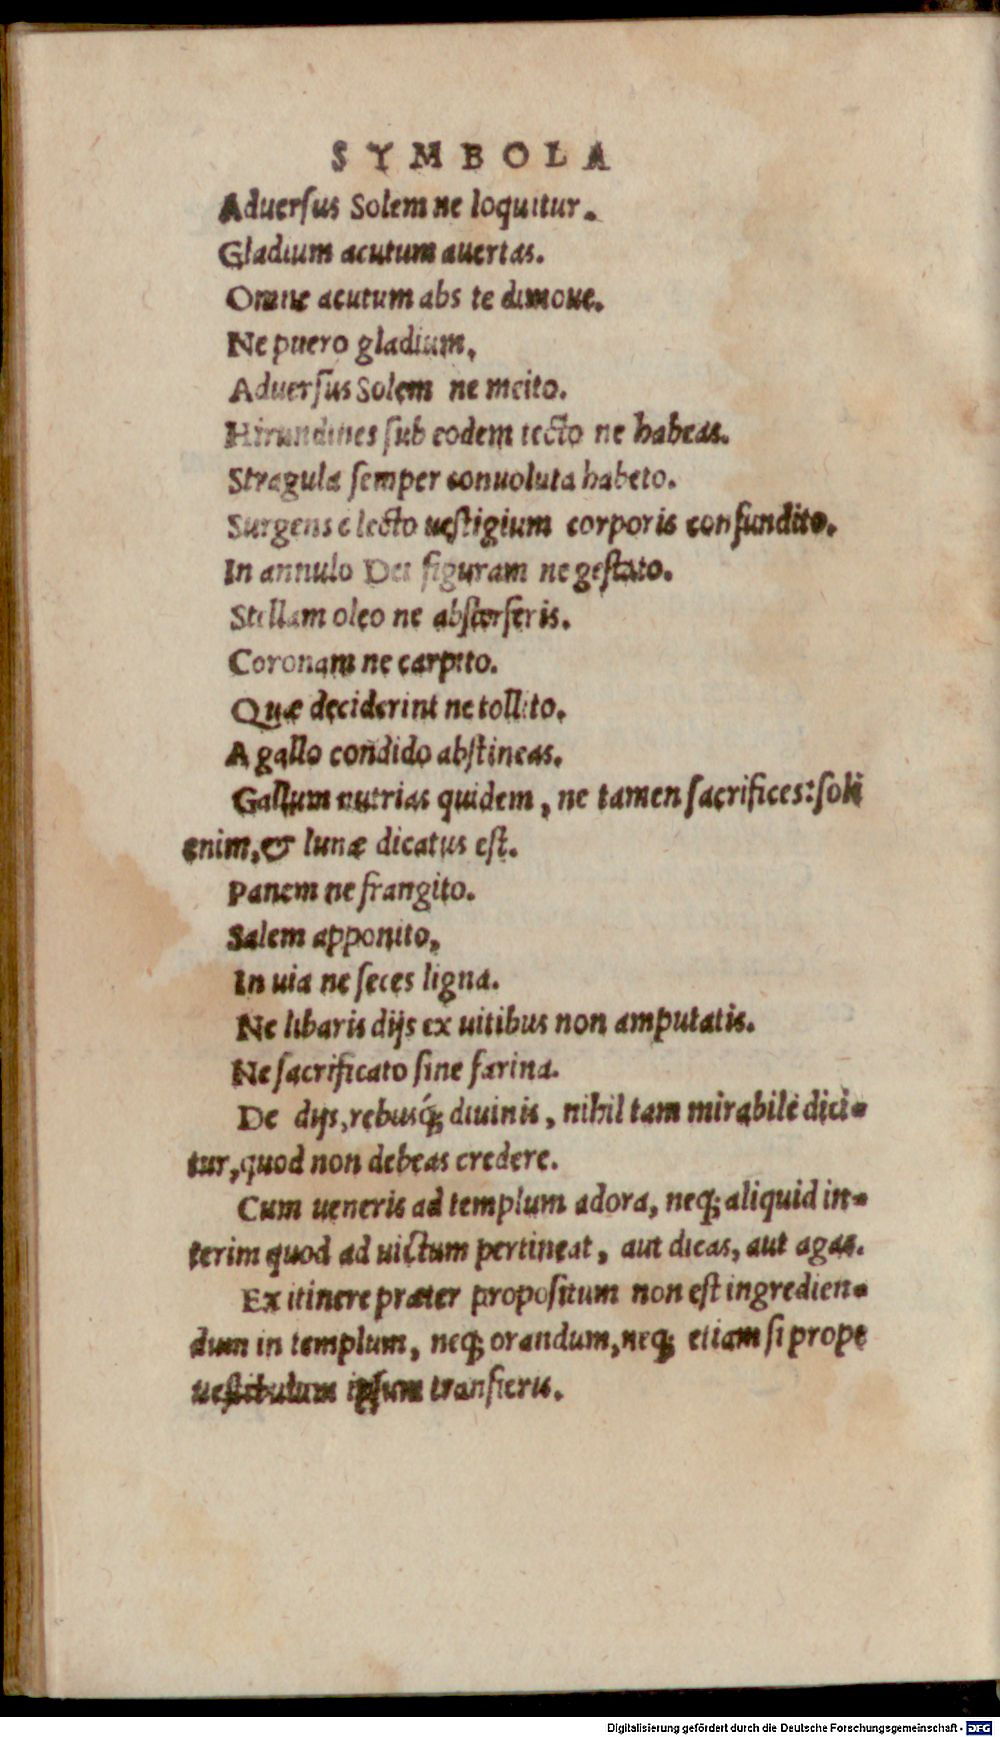 SYMBOLA
Aduersus Solem ne loquitur.
Gladium acutum auertas.
Omne acutum abs te dimoue.
Ne puero gladium,
Aduersus Solem ne meito.
Hirundines sub eodem tecto ne habeas.
Stragula semper conuoluta habeto.
Surgens e lecto uestigium corporis confundito.
In annulo Dei figuram ne gestato.
Stellam oleo ne absterseris.
Coronam ne carpito.
Quæ deciderint ne tollito.
A gallo condido abstineas.
Gallum nutrias quidem, ne tamen sacrifices: soli
enim, & lunæ dicatus est.
Panem ne frangito.
Salem apponito,
In uia ne seces ligna.
Ne libaris dijs ex uitibus non amputatis.
Ne sacrificato sine farina.
De dijs, rebusq́; diuinis, nihil tam mirabile dici-
tur, quod non debeas credere.
Cum ueneris ad templum adora, neq; aliquid in-
terim quod ad uictum pertineat, aut dicas, aut agas.
Ex itinere præter propositum non est ingredien-
dum in templum, neq; orandum, neq; etiam si prope
uestibulum ipsum transieris.
Digitalisierung gefördert durch die Deutsche Forschungsgemeinschaft - DFG